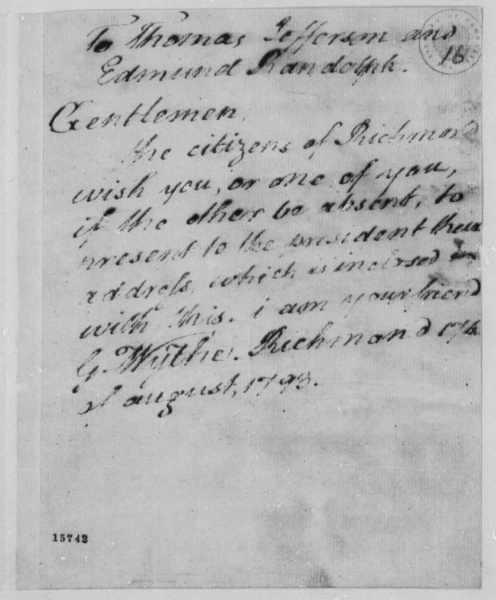 To Thomas Jefferson and
Edmund Randolph.
16
Gentlemen,
the citizens of Richmond
wish you, or one of you,
if the other be absent, to
present to the president their
address, which is inclosed
with this. i am your friend
G. Wythe. Richmond 17th
of august, 1793.
15742